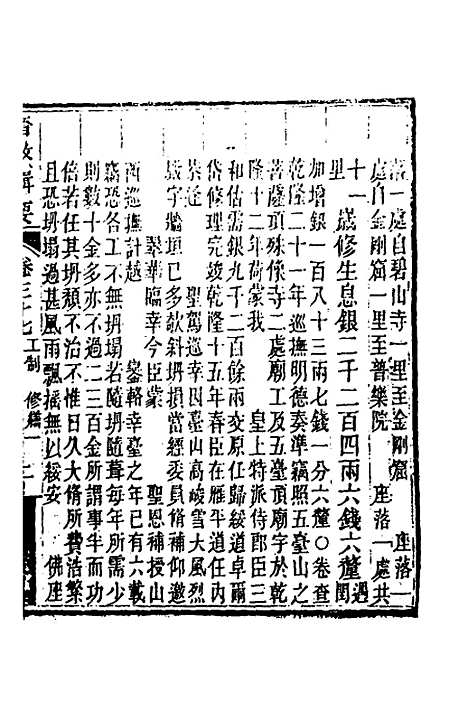 落一處自碧山寺一里至金剛窟　座落一
處自金剛窟一里至普樂院　座落一處共
十一里　歲修生息銀二千二百四兩六錢六釐遇閏
加增銀一百八十三兩七錢一分六釐○卷查
乾隆二十一年巡撫明德奏準竊照五臺山之
菩薩頂殊像寺二處廟工及五臺頂廟宇於乾
隆十二年荷蒙我　皇上特派侍郎臣三
和估需銀九千二百餘兩交原任歸綏道卓爾
岱修理完竣乾隆十五年春臣在雁平道任內
恭逢　聖駕巡幸因臺山高峻雪大風烈
殿宇牆垣已多欹斜坍損當經委員脩補仰邀
翠華臨幸今臣蒙　聖恩補授山
西巡撫計越　鑾輅幸臺之年已有六載
竊恐各工不無坍塌若隨坍隨葺每年所需少
則數十金多亦不過二三百金所謂事半而功
倍若任其坍頹不治不惟日久大脩所費浩繁
且恐坍塌過甚風雨飄搖無以綏安　佛座
晉政輯要　卷三十七　工制　修繕一